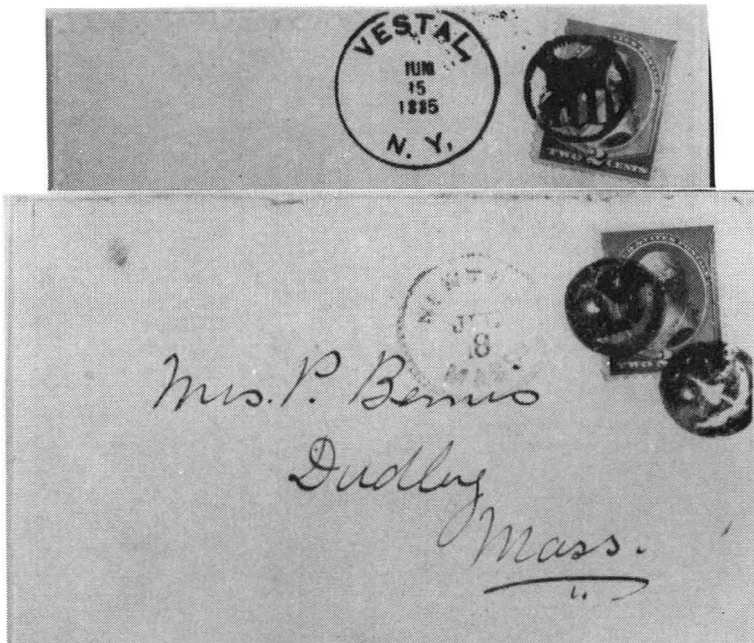 VESTAL,
JUN
15
1885
N. Y.
TWO 2 CENTS
18
MASS
Mrs. P. Bemis
Dudley
Mass.